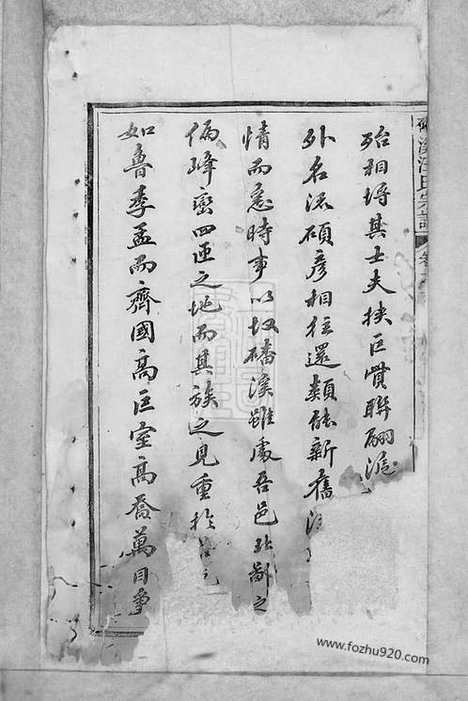 溪汪氏宗譜
殆相埒其士夫挾巨貲聯翩滬
外名流碩彥相往還類能新舊
情而急時事以故磻溪雖處吾邑北鄙之
偏峰巒四匝之地而其族之見重於
如魯季孟而齊國高巨室高喬萬目爭
www.fozhu920.com